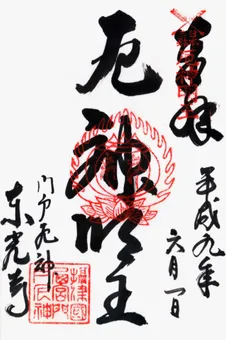 奉拝
平成九年
六月一日
厄神明王
門戸厄神
東光寺
摂津國
西宮門
戸厄神